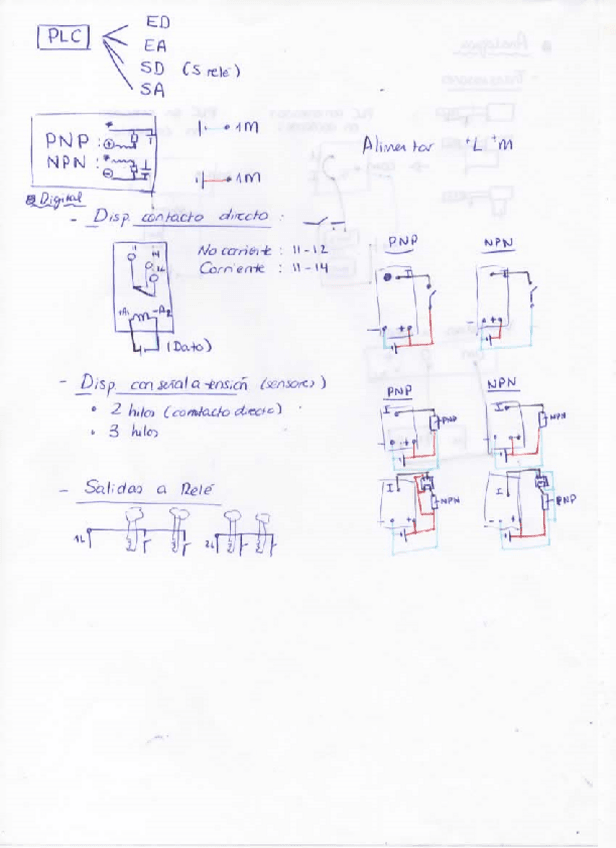 PLC
ED
EA
SD (S relé)
SA
PNP :
NPN :
1M
1M
Alimentar +L +M
Digital
- Disp. contacto directo :
No corriente : 11-12
Corriente : 11-14
(Dato)
PNP NPN
- Disp. con señal a tensión (sensores)
• 2 hilos (contacto directo)
• 3 hilos
PNP NPN
I PNP I NPN
I NPN I PNP
- Salidas a Relé
1L 2L